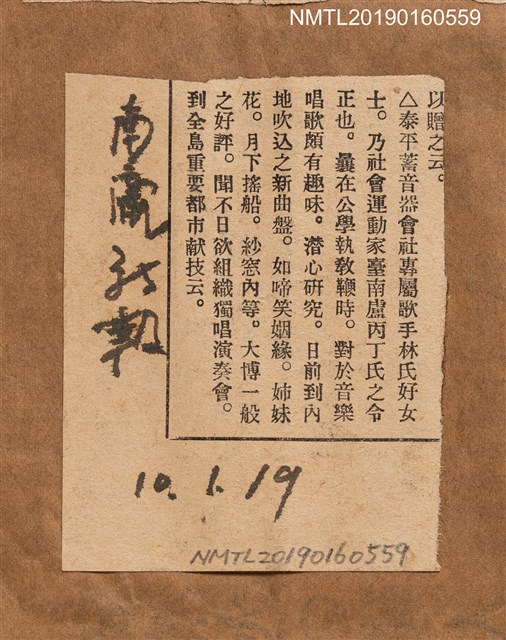 NMTL20190160559
以贈之云。
△泰平蓄音器會社專屬歌手林氏好女
士。乃社會運動家臺南盧丙丁氏之令
正也。曩在公學執敎鞭時。對於音樂
唱歌頗有趣味。潜心硏究。日前到內
地吹込之新曲盤。如啼笑姻緣。姉妹
花。月下搖船。紗窓內等。大博一般
之好評。聞不日欲組織獨唱演奏會。
到全島重要都市献技云。
南瀛新報
10.1.19
NMTL20190160559